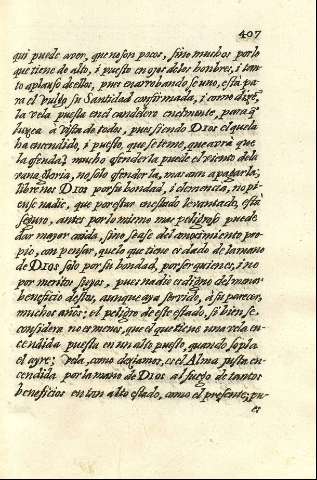 407
qui puede aver, que no son pocos, sino muchos por lo
que tiene de alto, i puesto en ojos de los hombres, i tan-
to aplauso dellos, pues en arrobandose uno, està pa-
ra el vulgo su Santidad confirmada, i como dizen,
la vela puesta en el candelero enelmonte, para q̃
luzga à vista de todos, pues siendo DIOS el que la
ha encendido, i puesto, que se teme, que avrà que
la ofenda? mucho ofenderla puede el viento de la
vana gloria, no solo ofenderla, mas aun apagarla;
libre nos DIOS por su bondad, i clemencia, no pi-
ense nadie, que por estar en estado levantado, està
seguro, antes por lo mismo mas peligroso puede
dar mayor caida, sino se ase del conocimiento pro-
pio, con pensar, que lo que tiene es dado de la mano
de DIOS solo por su bondad, por ser quien es, i no
por meritos suyos, pues nadie es digno del menor
beneficio destos, aunque aya servido, à su parecer,
muchos años; el peligro de este estado, si bien se
considera no es menos, que el que tiene una vela en-
cendida puesta en un alto puesto, quando sopla
el ayre; Vela, como dezjamos, es el Alma justa en-
cendida por la mano de DIOS al fuego de tantos
beneficios en tan alto estado, como el presente; pu-
es